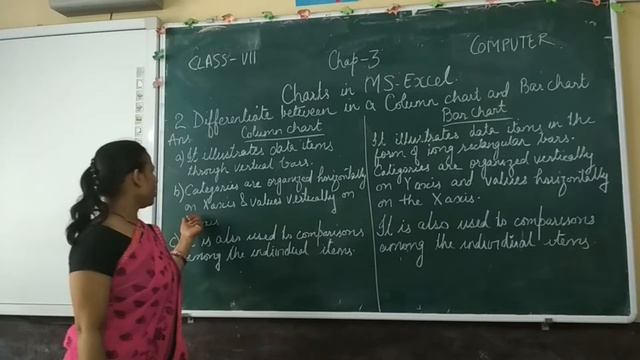 CLASS-VII Chap-3 COMPUTER
Charts in MS-Excel.
2. Differentiate between in a Column chart and Bar chart
Ans
Column chart
a) It illustrates data items
through vertical bars.
b) Categories are organized horizontally
on X axis & values vertically on
c) is also used to comparisons
among the individual items.
Bar chart
It illustrates data items in the
form of long rectangular bars.
Categories are organized vertically
on Y axis and values horizontally
on the X axis.
It is also used to comparisons
among the individual items.